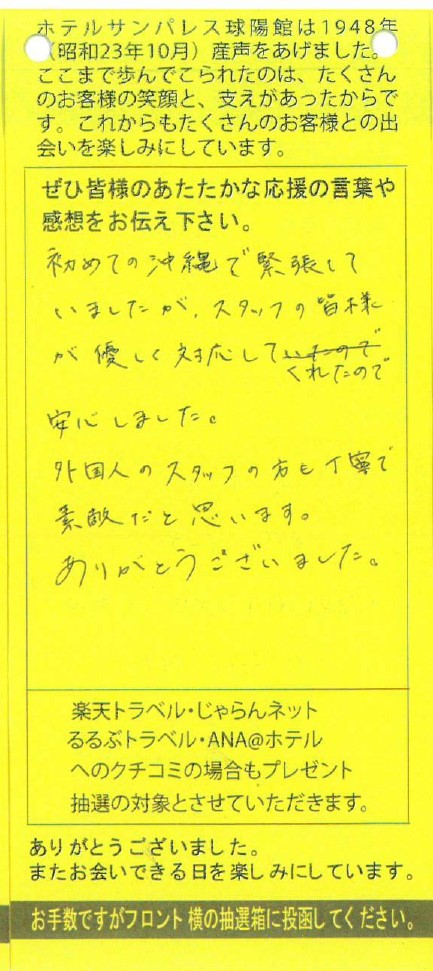 ホテルサンパレス球陽館は1948年
(昭和23年10月)産声をあげました。
ここまで歩んでこられたのは、たくさん
のお客様の笑顔と、支えがあったからで
す。これからもたくさんのお客様との出
会いを楽しみにしています。
ぜひ皆様のあたたかな応援の言葉や
感想をお伝え下さい。
初めての沖縄で緊張して
いましたが、スタッフの皆様
が優しく対応していたので
くれたので
安心しました。
外国人のスタッフの方も丁寧で
素敵だと思います。
ありがとうございました。
楽天トラベル・じゃらんネット
るるぶトラベル・ANA@ホテル
へのクチコミの場合もプレゼント
抽選の対象とさせていただきます。
ありがとうございました。
またお会いできる日を楽しみにしています。
お手数ですがフロント横の抽選箱に投函してください。